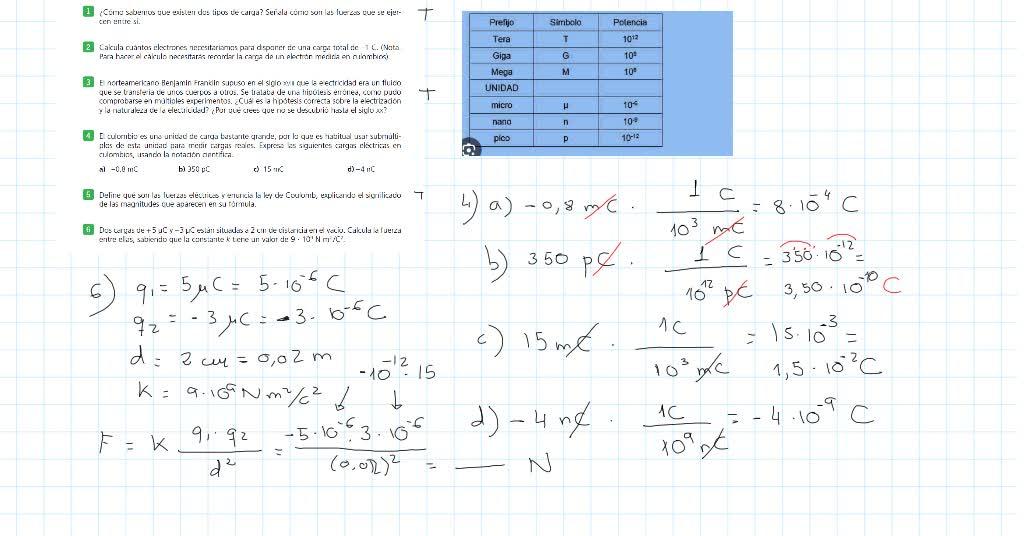 1 ¿Cómo sabemos que existen dos tipos de carga? Señala cómo son las fuerzas que se ejer-
cen entre sí.
T
2 Calcula cuántos electrones necesitaríamos para disponer de una carga total de -1 C. (Nota:
Para hacer el cálculo necesitarás recordar la carga de un electrón medida en culombios).
3 El norteamericano Benjamin Franklin supuso en el siglo XVIII que la electricidad era un fluido
que se transfería de unos cuerpos a otros. Se trataba de una hipótesis errónea, como pudo
comprobarse en múltiples experimentos. ¿Cuál es la hipótesis correcta sobre la electrización
y la naturaleza de la electricidad? ¿Por qué crees que no se descubrió hasta el siglo XX?
T
4 El culombio es una unidad de carga bastante grande, por lo que es habitual usar submúlti-
plos de esta unidad para medir cargas reales. Expresa las siguientes cargas eléctricas en
culombios, usando la notación científica.
a) -0,8 mC b) 350 pC c) 15 mC d) -4 nC
5 Define qué son las fuerzas eléctricas y enuncia la ley de Coulomb, explicando el significado
de las magnitudes que aparecen en su fórmula.
T
6 Dos cargas de +5 µC y -3 µC están situadas a 2 cm de distancia en el vacío. Calcula la fuerza
entre ellas, sabiendo que la constante K tiene un valor de 9 · 10⁹ N m²/C².
Prefijo Símbolo Potencia
Tera T 10¹²
Giga G 10⁹
Mega M 10⁶
UNIDAD
micro µ 10⁻⁶
nano n 10⁻⁹
pico p 10⁻¹²
4) a) -0,8 mC · 1 C / 10³ mC = 8·10⁻⁴ C
b) 350 pC · 1 C / 10¹² pC = 350·10⁻¹² =
3,50·10⁻¹⁰ C
c) 15 mC · 1C / 10³ mC = 15·10⁻³ =
1,5·10⁻² C
d) -4 nC · 1C / 10⁹ nC = -4·10⁻⁹ C
6) q₁ = 5 µC = 5·10⁻⁶ C
q₂ = -3 µC = -3·10⁻⁶ C
d = 2 cm = 0,02 m
-10⁻¹²·15
K = 9·10⁹ N m²/c²
F = K q₁·q₂ / d² = -5·10⁻⁶·3·10⁻⁶ / (0,02)² = ___ N